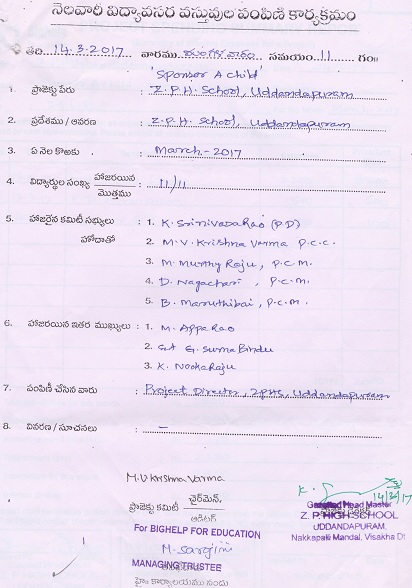 నెలవారీ విద్యావసర వస్తువుల పంపిణీ కార్యక్రమం
తేది 14.3.2017 వారము మంగళవారం సమయం 11 గం॥
'Sponsor A Child'
1. ప్రాజెక్టు పేరు : Z.P.H. School, Uddandapuram
2. ప్రదేశము / ఆవరణ : Z.P.H. School, Uddandapuram
3. ఏ నెల కొఱకు : March-2017
4. విద్యార్థుల సంఖ్య హాజరయిన : 11/11
మొత్తము
5. హాజరైన కమిటీ సభ్యులు : 1. K. Srinivasa Rao (P.D)
హోదాతో 2. M.V. Krishna Varma P.C.C.
3. M. Murthy Raju, P.C.M.
4. D. Nagachari, P.C.M.
5. B. Maruthibai, P.C.M.
6. హాజరయిన ఇతర ముఖ్యులు : 1. M. Appa Rao
2. G. Suma Bindu
3. K. Nooka Raju
7. పంపిణీ చేసిన వారు : Project Director, ZPHS, Uddandapuram
8. వివరణ / సూచనలు : –
M.V Krishna Varma
ప్రాజెక్టు కమిటీ చైర్మెన్,
ఆడిటర్
For BIGHELP FOR EDUCATION
M. Sargini
MANAGING TRUSTEE
హెం కార్యాలయము నందు
14/3/17
Gazetted Head Master
Z. P. HIGH SCHOOL
UDDANDAPURAM,
Nakkapalli Mandal, Visakha Dt